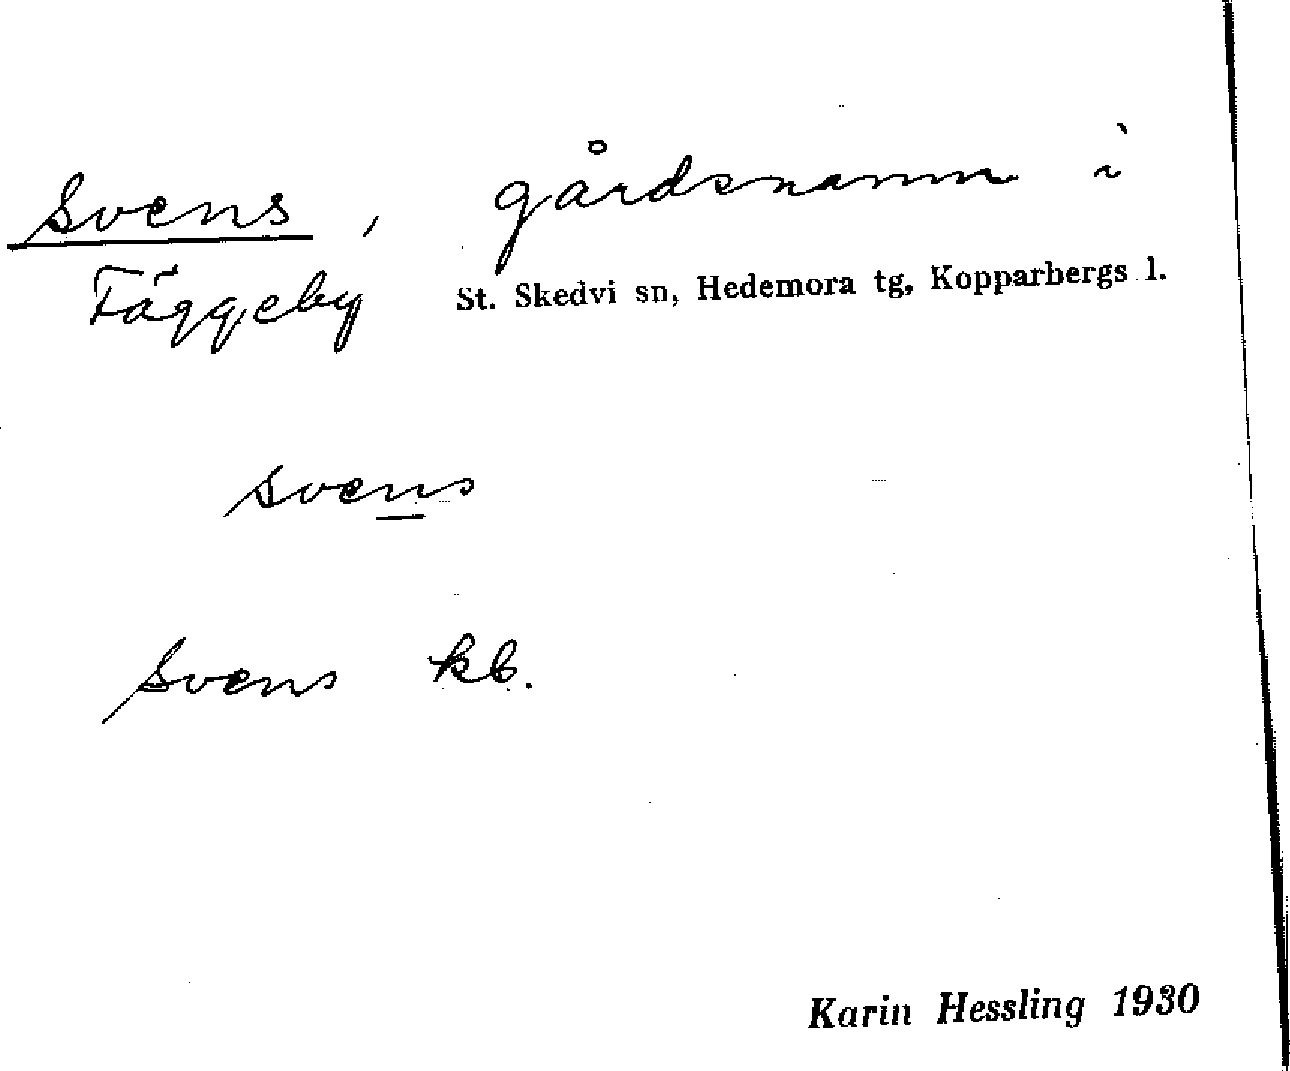 Svens, gårdsnamn i
Fäggeby St. Skedvi sn, Hedemora tg, Kopparbergs l.
svens
Svens kb.
Karin Hessling 1930